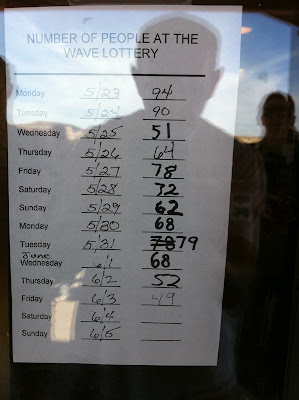 NUMBER OF PEOPLE AT THE
WAVE LOTTERY
Monday 5/23 94
Tuesday 5/24 90
Wednesday 5/25 51
Thursday 5/26 64
Friday 5/27 78
Saturday 5/28 72
Sunday 5/29 62
Monday 5/30 68
Tuesday 5/31 78 79
June
Wednesday 6/1 68
Thursday 6/2 52
Friday 6/3 49
Saturday 6/4
Sunday 6/5